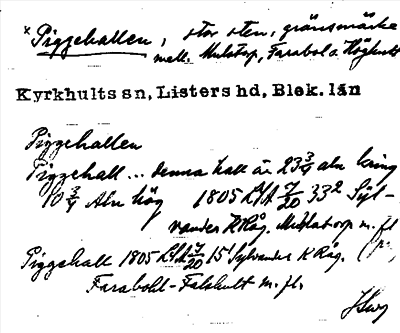 * Piggehallen, stor sten, gränsmärke
mell. Mulstorp, Farabol o. Höghult
Kyrkhults sn, Listers hd, Blek. län
Piggehallen
Piggehall ... denna hall är 23 3/4 aln kring
10 3/4 Aln hög 1805 LSA 7/20 33² Syl-
vander KRåg. m. fl
Piggehall 1805 LSA 7/20 15¹ Sylvander KRåg.
Farabohl - Falshult m. fl.